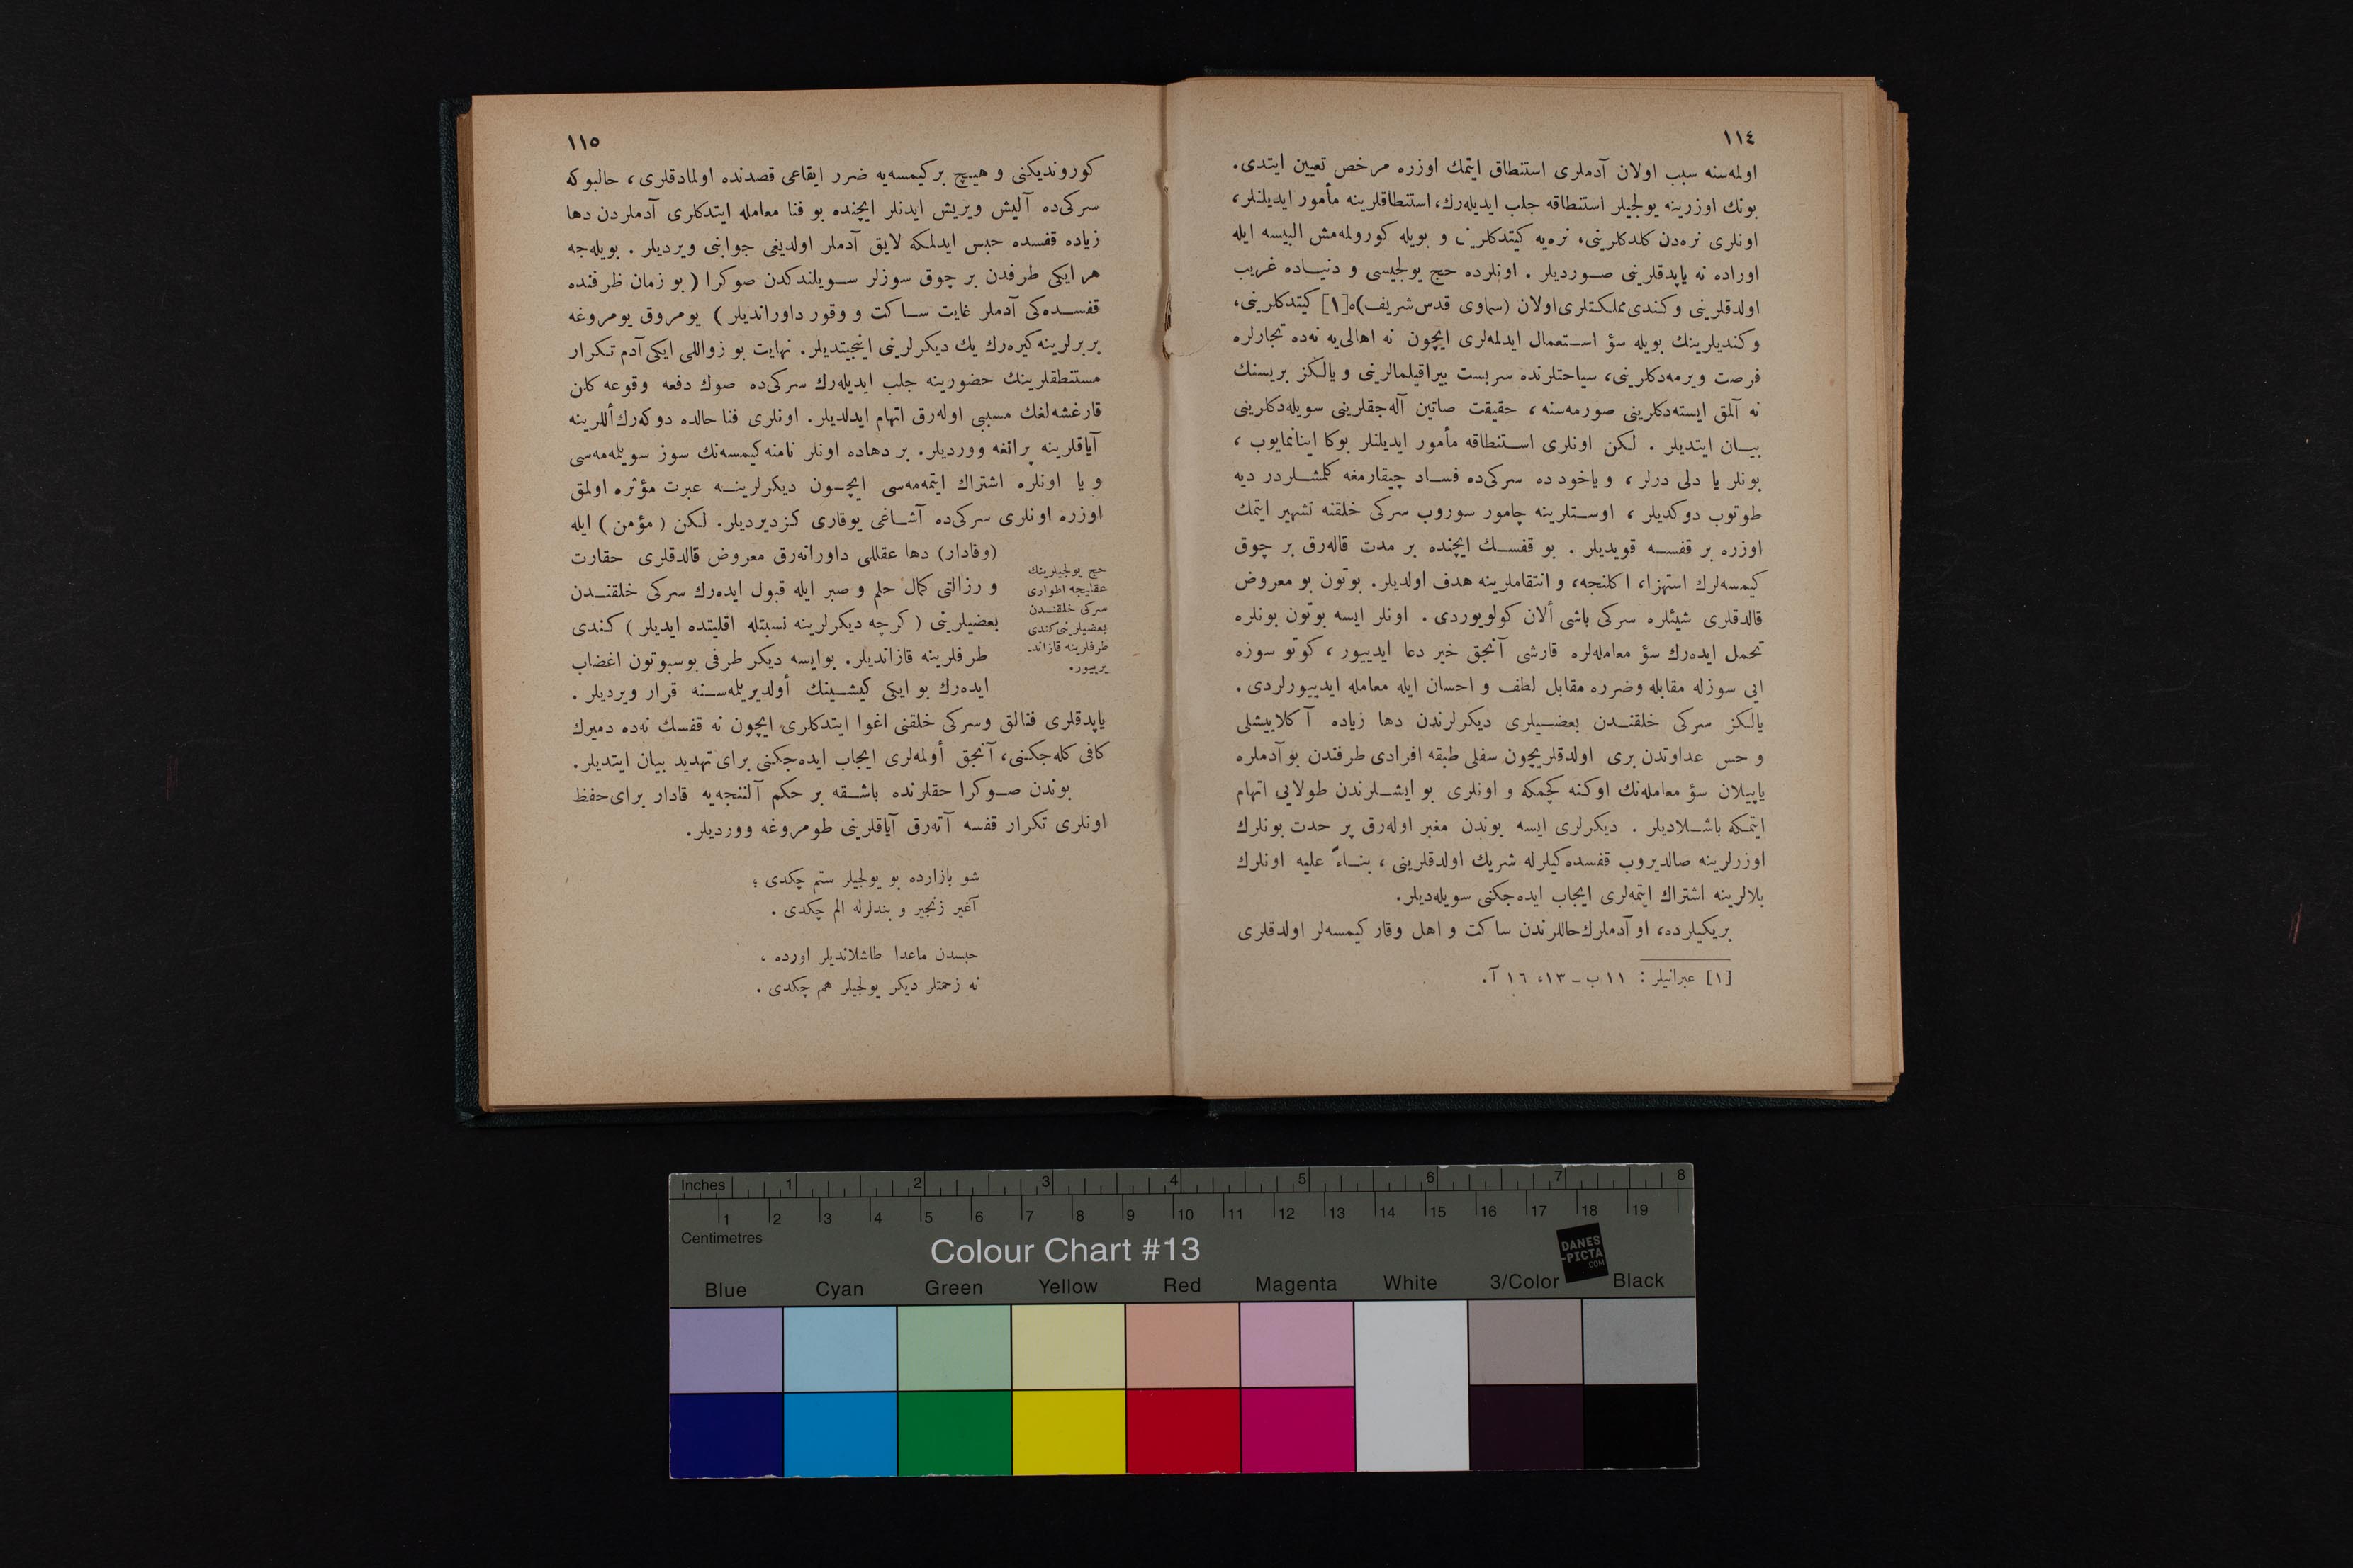 ١١٤
اولمه‌سنه سبب اولان آدملری استنطاق ایتمك اوزره مرخص تعیین ایتدی.
بونك اوزرینه یولجیلر استنطاقه جلب ایدیله‌رك، استنطاقلرینه مأمور ایدیلنلر،
اونلری نره‌دن كلدكلرینی، نره‌یه كیتدكلرینی و بویله كورولمه‌مش البیسه ایله
اوراده نه یاپدقلرینی صوردیلر . اونلرده حج یولجیسی و دنیاده غریب
اولدقلرینی وكندی مملكتلری اولان (سماوی قدس شریف)ه[١] كیتدكلرینی،
وكندیلرینك بویله سؤ استعمال ایدلمه‌لری ایچون نه اهالی‌یه نه‌ده تجارلره
فرصت ویرمه‌دكلرینی، سیاحتلرنده سربست بیراقیلمالرینی و یالكز بریسنك
نه آلمق ایسته‌دكلرینی صورمه‌سنه ، حقیقت صاتین آله‌جقلرینی سویله‌دكلرینی
بیان ایتدیلر . لكن اونلری استنطاقه مأمور ایدیلنلر بوكا اینانمایوب ،
بونلر یا دلی درلر ، و یاخود ده سركی‌ده فساد چیقارمغه كلمشلردر دیه
طوتوب دوكدیلر ، اوستلرینه چامور سوروب سركی خلقنه تشهیر ایتمك
اوزره بر قفسه قویدیلر . بو قفسك ایچنده بر مدت قاله‌رق بر چوق
كیمسه‌لرك استهزا، اكلنجه، و انتقاملرینه هدف اولدیلر. بوتون بو معروض
قالدقلری شیئلره سركی باشی ألان كولویوردی . اونلر ایسه بوتون بونلره
تحمل ایده‌رك سؤ معامله‌لره قارشی آنجق خیر دعا ایدییور ، كوتو سوزه
ایی سوزله مقابله وضرره مقابل لطف و احسان ایله معامله ایدییورلردی .
یالكز سركی خلقندن بعضیلری دیكرلرندن دها زیاده آكلاییشلی
و حس عداوتدن بری اولدقلریچون سفلی طبقه افرادی طرفندن بو آدملره
یاپیلان سؤ معامله‌نك اوكنه كچمكه و اونلری بو ایشلرندن طولایی اتهام
ایتمكه باشلادیلر . دیكرلری ایسه بوندن مغبر اوله‌رق پر حدت بونلرك
اوزرلرینه صالدیروب قفسده‌كیلرله شریك اولدقلرینی ، بناءً علیه اونلرك
بلالرینه اشتراك ایتمه‌لری ایجاب ایده‌جكنی سویله‌دیلر.
بریكیلرده، او آدملرك حاللرندن ساكت و اهل وقار كیمسه‌لر اولدقلری
[١] عبرانیلر : ١١ ب ـ ١٣، ١٦ آ.
١١٥
كوروندیكنی و هیچ بر كیمسه‌یه ضرر ایقاعی قصدنده اولمادقلری ، حالبوكه
سركی‌ده آلیش ویریش ایدنلر ایچنده بو فنا معامله ایتدكلری آدملردن دها
زیاده قفسده حبس ایدلمكه لایق آدملر اولدیغی جوابنی ویردیلر . بویله‌جه
هر ایكی طرفدن بر چوق سوزلر سویلندكدن صوكرا ( بو زمان ظرفنده
قفسده‌كی آدملر غایت ساكت و وقور داوراندیلر ) یومروق یومروغه
بربرلرینه كیره‌رك یك دیكرلرینی اینجیتدیلر. نهایت بو زواللی ایكی آدم تكرار
مستنطقلرینك حضورینه جلب ایدیله‌رك سركی‌ده صوك دفعه وقوعه كلن
قارغشه‌لغك مسببی اوله‌رق اتهام ایدلدیلر. اونلری فنا حالده دوكه‌رك أللرینه
آیاقلرینه پرانغه ووردیلر. بر دهاده اونلر نامنه كیمسه‌نك سوز سویلمه‌مه‌سی
و یا اونلره اشتراك ایتمه‌مه‌سی ایچون دیكرلرینه عبرت مؤثره اولمق
اوزره اونلری سركی‌ده آشاغی یوقاری كزدیردیلر. لكن ( مؤمن ) ایله
(وفادار) دها عقللی داورانه‌رق معروض قالدقلری حقارت
و رزالتی كمال حلم و صبر ایله قبول ایده‌رك سركی خلقندن
بعضیلرینی ( كرچه دیكرلرینه نسبتله اقلیتده ایدیلر ) كندی
طرفلرینه قازاندیلر. بوایسه دیكر طرفی بوسبوتون اغضاب
ایده‌رك بو ایكی كیشینك أولدیریلمه‌سنه قرار ویردیلر .
حج یولجیلرینك
عقلیجه اطواری
سركی خلقندن
بعضیلرینی كندی
طرفلرینه قازاند‌-
یرییور.
یاپدقلری فنالق وسركی خلقنی اغوا ایتدكلری ایچون نه قفسك نه‌ده دمیرك
كافی كله‌جكنی، آنجق أولمه‌لری ایجاب ایده‌جكنی برای تهدید بیان ایتدیلر.
بوندن صوكرا حقلرنده باشقه بر حكم آلننجه‌یه قادار برای حفظ
اونلری تكرار قفسه آته‌رق آیاقلرینی طومروغه ووردیلر.
شو بازارده بو یولجیلر ستم چكدی ؛
آغیر زنجیر و بندلرله الم چكدی .
حبسدن ماعدا طاشلاندیلر اورده ،
نه زحمتلر دیكر یولجیلر هم چكدی .
Inches 1 2 3 4 5 6 7 8
1 2 3 4 5 6 7 8 9 10 11 12 13 14 15 16 17 18 19
Centimetres
Colour Chart #13
DANES
-PICTA
.COM
Blue Cyan Green Yellow Red Magenta White 3/Color Black